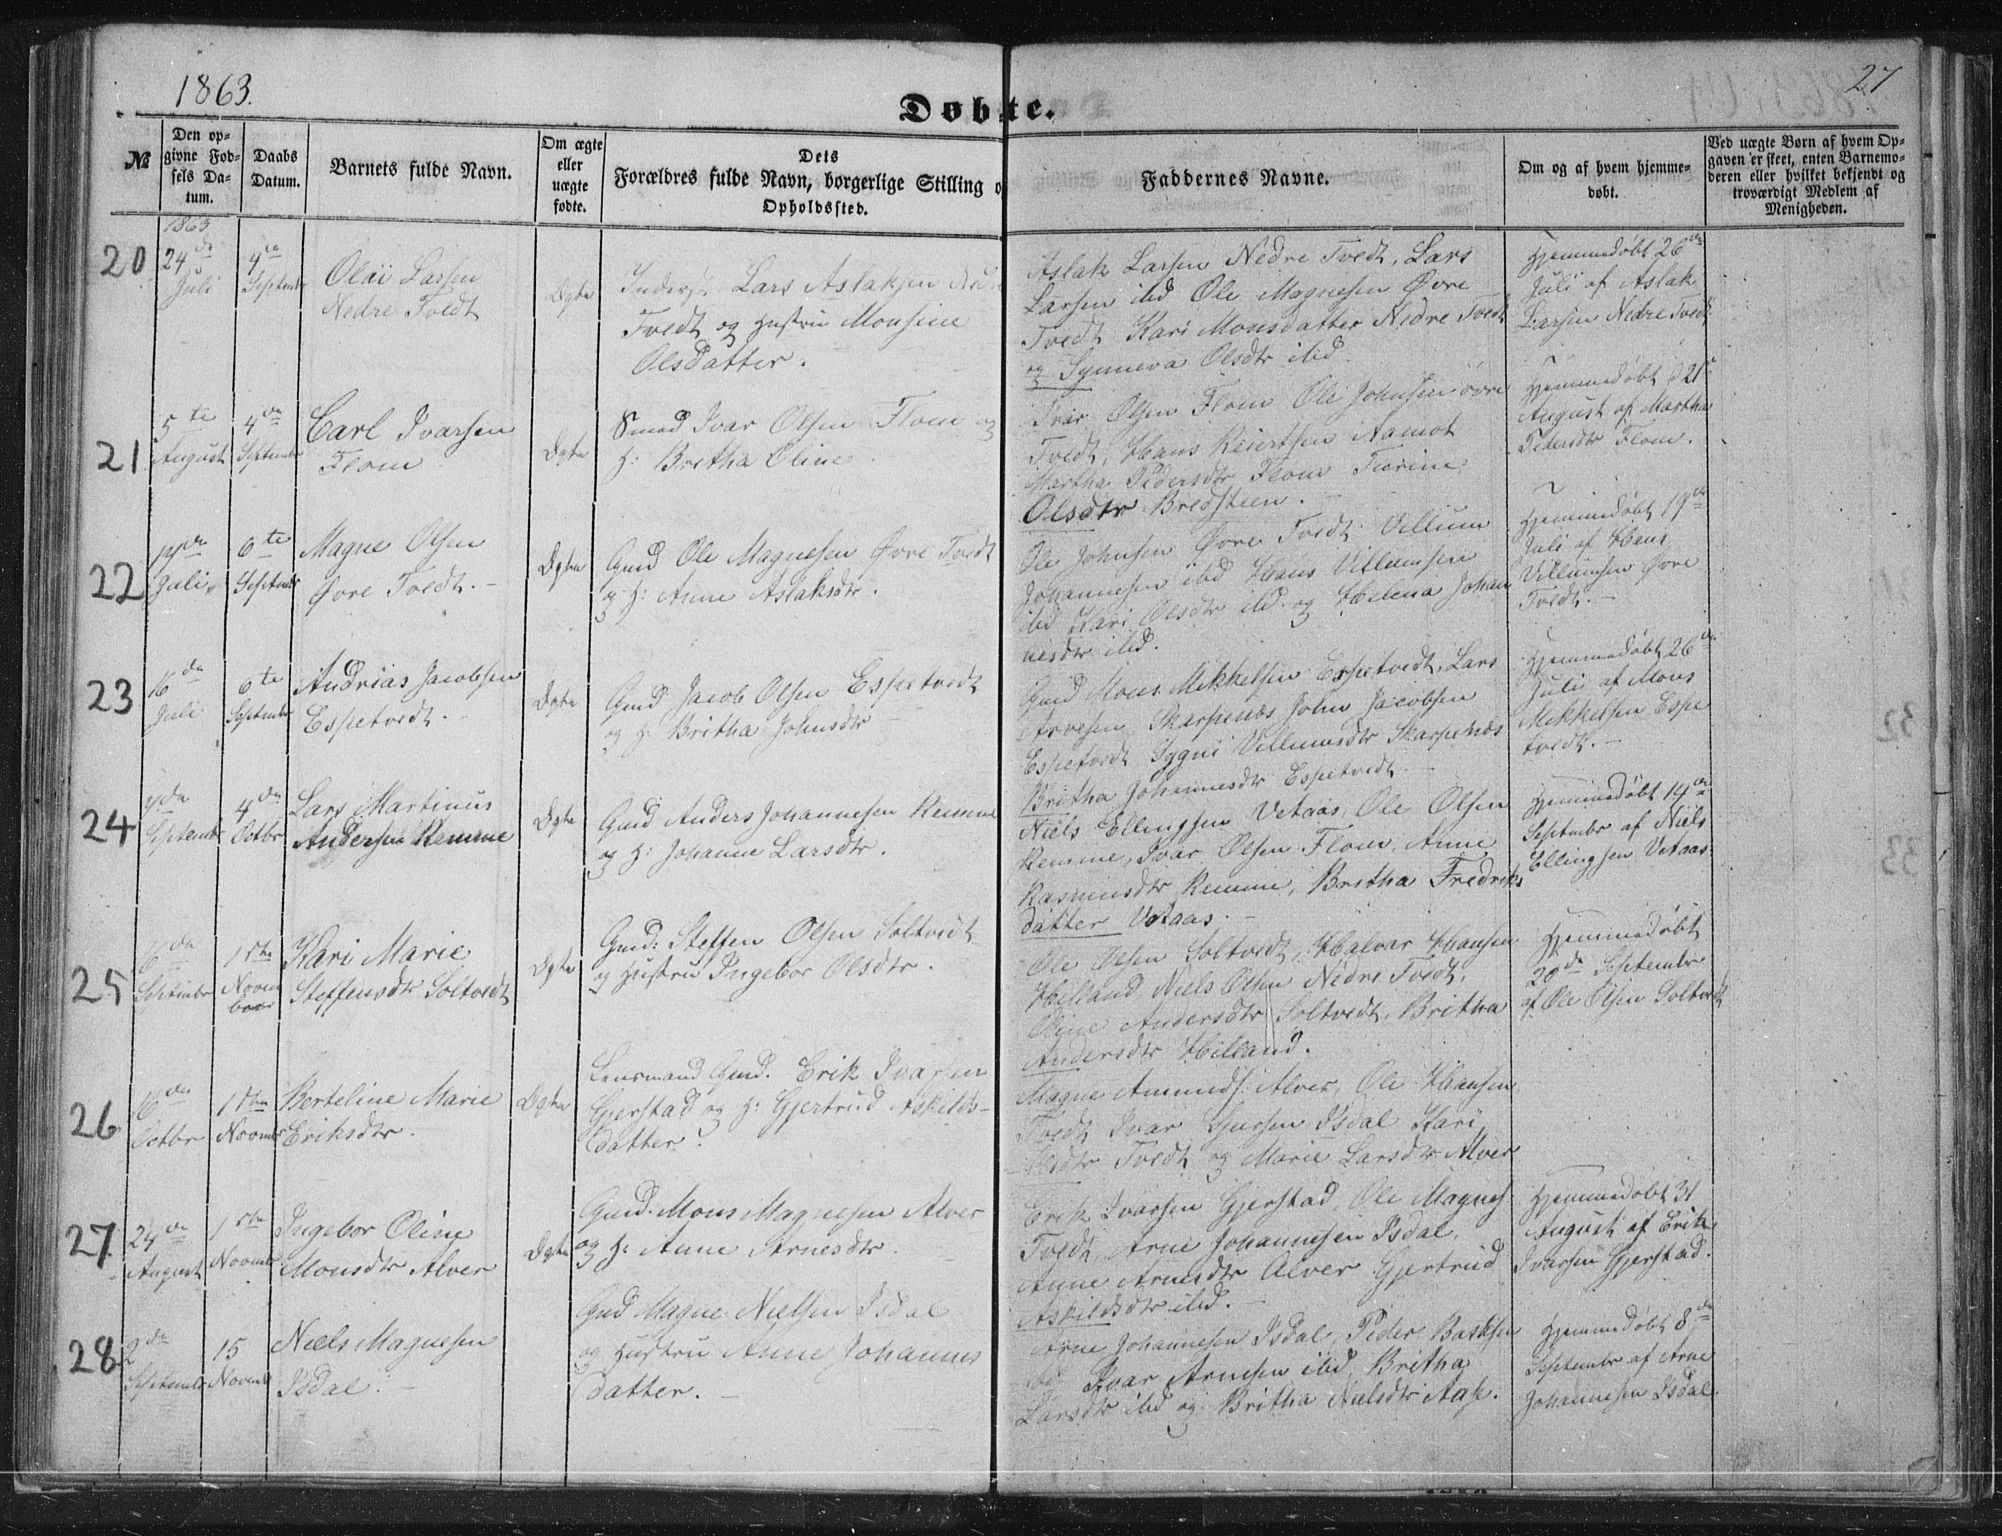 1863.
27
Døbte.
№
Den op-
givne Fød-
sels Da-
tum.
Daabs
Datum.
Barnets fulde Navn.
Om ægte
eller
uægte
fødte.
Dets
Forældres fulde Navn, borgerlige Stilling o
Opholdssted.
Faddernes Navne.
Om og af hvem hjemme-
døbt.
Ved uægte Børn af hvem Op-
gaven er skeet, enten Barnemo-
deren eller hvilket bekjendt og
troværdigt Medlem af
Menigheden.
20
1863
24de
Juli
4de
Septembr
Olai Larsen
Nedre Tvedt
Ægte
Inderst Lars Aslaksen
Tvedt og Hustru Monsine
Olsdatter.
Aslak Larsen Nedre Tvedt, Lars
Larsen ibid Ole Magnesen Øvre
Tvedt Kari Monsdatter Nedre Tvedt
og Synneva Olsdtr ibid.
Hjemmedøbt 26de
Juli af Aslak
Larsen Nedre Tvedt
21
5te
August
4de
Septembr
Carl Ivarsen
Flom
Ægte
Smed Ivar Olsen Flom og
H: Britha Oline.
Ivar Olsen Flom Ole Johnsen øvre
Tvedt, Hans Reiertsen Aamot
Martha Pedersdtr Flom
Olsdtr Bredsteen.
Hjemmedøbt d 21
August af Martha
Pedersdtr Flom.
22
Juli
6te
Septembr
Magne Olsen
Øvre Tvedt.
Ægte
Gmd Ole Magnesen Øvre Tvedt
og H: Anne Aslaksdtr.
Ole Johnsen Øvre Tvedt Villum
Johannesen ibid Hans Villumsen
ibid Kari Olsdtr ibid. og Helena Johan
nesdtr ibid.
Hjemmedøbt 19de
Juli af Hans
Villumsen Øvre
Tvedt.
23
16de
Juli
6te
Septembr
Andreas Jacobsen
Espetvedt.
Ægte
Gmd Jacob Olsen Espetvedt
og H: Britha Johnsdtr
Gmd Mons Mikkelsen Espetvedt, Lars
Arvesen Skarpenæs John Jacobsen
Espetvedt, Sygni Villumsdtr Skarpenæs
Britha Johannesdtr Espetvedt.
Hjemmedøbt 26de
Juli af Mons
Mikkelsen Espe
tvedt.
24
Septembr
4de
Octbr
Lars Martinus
Andersen Remme
Ægte
Gmd Anders Johannesen Remme
og H: Johanne Larsdtr.
Niels Ellingsen Vetaas, Ole Olsen
Remme, Ivar Olsen Flom, Anne
Rasmusdtr Remme, Britha Fredriks
datter Vetaas.
Hjemmedøbt 14de
Septembr af Niels
Ellingsen Vetaas.
25
6de
Septembr
1ste
Novem
ber
Kari Marie
Steffensdtr Soltvedt
Ægte
Gmd: Steffen Olsen Soltvedt
og Hustru Ingebor Olsdtr.
Ole Olsen Soltvedt, Halvor Hansen
Helland, Niels Olsen Nedre Tvedt,
Oline Andersdtr Soltvedt, Britha
Andersdtr Hilland.
Hjemmedøbt
20de Septembr
af Ole Olsen Soltvedt
26
16de
Octbr
1ste
Novmbr
Berteline Marie
Eriksdtr.
Ægte
Lensmand Gmd. Erik Ivarsen
Gjerstad og H: Gjertrud Askilds-
datter.
Magne Amunds: Alver, Ole Hansen
Tvedt Ivar Isdal Kari
Olsdtr Tvedt og Marie Larsdtr Alver
27
24de
August
1ste
Novmbr
Ingebor Oline
Monsdtr Alver
Ægte
Gmd. Mons Magnesen Alver
og H: Anne Arnesdtr.
Erik Ivarsen Gjerstad, Ole Magnes
Tvedt, Arne Johannesen Isdal,
Anne Arnesdtr Alver Gjertrud
Askildsdtr ibid.
Hjemmedøbt 31
August af Erik
Ivarsen Gjerstad.
28
2de
Septembr
15
Novembr
Niels Magnesen
Isdal.
Gmd Magne Nielsen Isdal
og Hustru Anne Johannes
datter.
Arne Johannesen Isdal, Peder
Ivar Arnesen ibid Britha
Larsdtr ibid og Britha Nielsdtr
Hjemmedøbt 8de
Septembr af Arne
Johannesen Isdal.